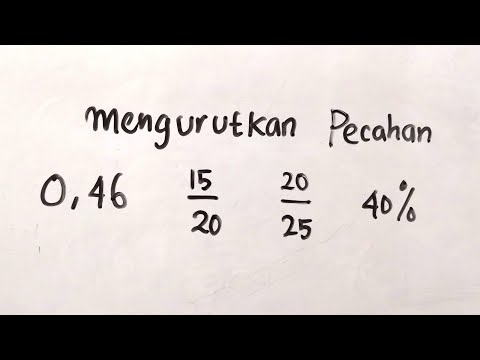 Mengurutkan Pecahan
0,46 15/20 20/25 40%